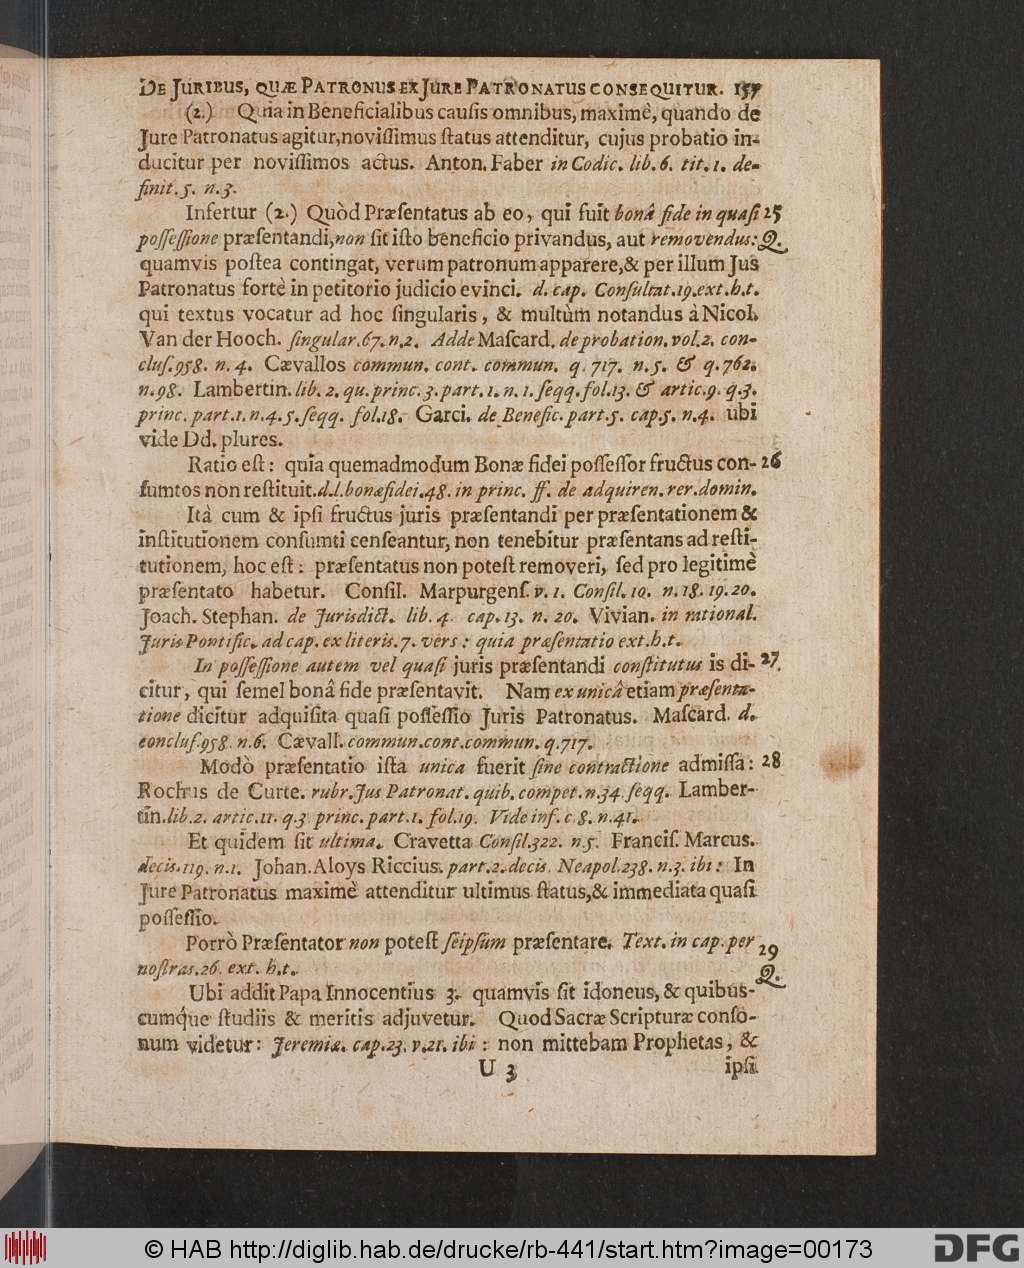 DE JURIBUS, QUÆ PATRONUS EX JURE PATRONATUS CONSEQUITUR. 157
(2.) Quia in Beneficialibus cauſis omnibus, maximè, quando de
Jure Patronatus agitur, noviſſimus ſtatus attenditur, cujus probatio in-
ducitur per noviſſimos actus. Anton. Faber in Codic. lib. 6. tit. 1. de-
finit. 5. n. 3.
Infertur (2.) Quòd Præſentatus ab eo, qui fuit bonâ fide in quaſi 25
poſſeſſione præſentandi, non ſit iſto beneficio privandus, aut removendus: Q.
quamvis poſtea contingat, verum patronum apparere, & per illum Jus
Patronatus fortè in petitorio judicio evinci. d. cap. Conſultat. 19. ext. h. t.
qui textus vocatur ad hoc ſingularis, & multùm notandus à Nicol.
Van der Hooch. ſingular. 67. n. 2. Adde Maſcard. de probation. vol. 2. con-
cluſ. 958. n. 4. Cævallos commun. cont. commun. q. 717. n. 5. & q. 762.
n. 98. Lambertin. lib. 2. qu. princ. 3. part. 1. n. 1. ſeqq. fol. 13. & artic. 9. q. 3.
princ. part. 1. n. 4. 5. ſeqq. fol. 18. Garci. de Benefic. part. 5. cap. 5. n. 4. ubi
vide Dd. plures.
Ratio eſt: quia quemadmodum Bonæ fidei poſſeſſor fructus con- 26
ſumtos non reſtituit. d. l. bonæ fidei. 48. in princ. ff. de adquiren. rer. domin.
Ità cum & ipſi fructus juris præſentandi per præſentationem &
inſtitutionem conſumti cenſeantur, non tenebitur præſentans ad reſti-
tutionem, hoc eſt: præſentatus non poteſt removeri, ſed pro legitimè
præſentato habetur. Conſil. Marpurgenſ. v. 1. Conſil. 10. n. 18. 19. 20.
Joach. Stephan. de Jurisdict. lib. 4. cap. 13. n. 20. Vivian. in rational.
Juris Pontific. ad cap. ex literis. 7. vers: quia præſentatio ext. h. t.
In poſſeſſione autem vel quaſi juris præſentandi conſtitutus is di- 27.
citur, qui ſemel bonâ fide præſentavit. Nam ex unicâ etiam præſenta-
tione dicitur adquiſita quaſi poſſeſſio Juris Patronatus. Maſcard. d.
concluſ. 958. n. 6. Cævall. commun. cont. commun. q. 717.
Modò præſentatio iſta unica fuerit ſine contractione admiſſa: 28
Rochus de Curte. rubr. Jus Patronat. quib. compet. n. 34. ſeqq. Lamber-
tin. lib. 2. artic. 11. q. 3 princ. part. 1. fol. 19. Vide inf. c. 8. n. 41.
Et quidem ſit ultima. Cravetta Conſil. 322. n. 5. Franciſ. Marcus.
decis. 119. n. 1. Johan. Aloys Riccius. part. 2. decis. Neapol. 238. n. 3. ibi: In
Jure Patronatus maximè attenditur ultimus ſtatus, & immediata quaſi
poſſeſſio.
Porrò Præſentator non poteſt ſeipſum præſentare. Text. in cap. per 29
noſtras. 26. ext. h. t. Q.
Ubi addit Papa Innocentius 3. quamvis ſit idoneus, & quibus-
cumq́ue ſtudiis & meritis adjuvetur. Quod Sacræ Scripturæ conſo-
num videtur: Jeremiæ. cap. 23. v. 21. ibi: non mittebam Prophetas, &
U 3 ipſi
© HAB http://diglib.hab.de/drucke/rb-441/start.htm?image=00173 DFG